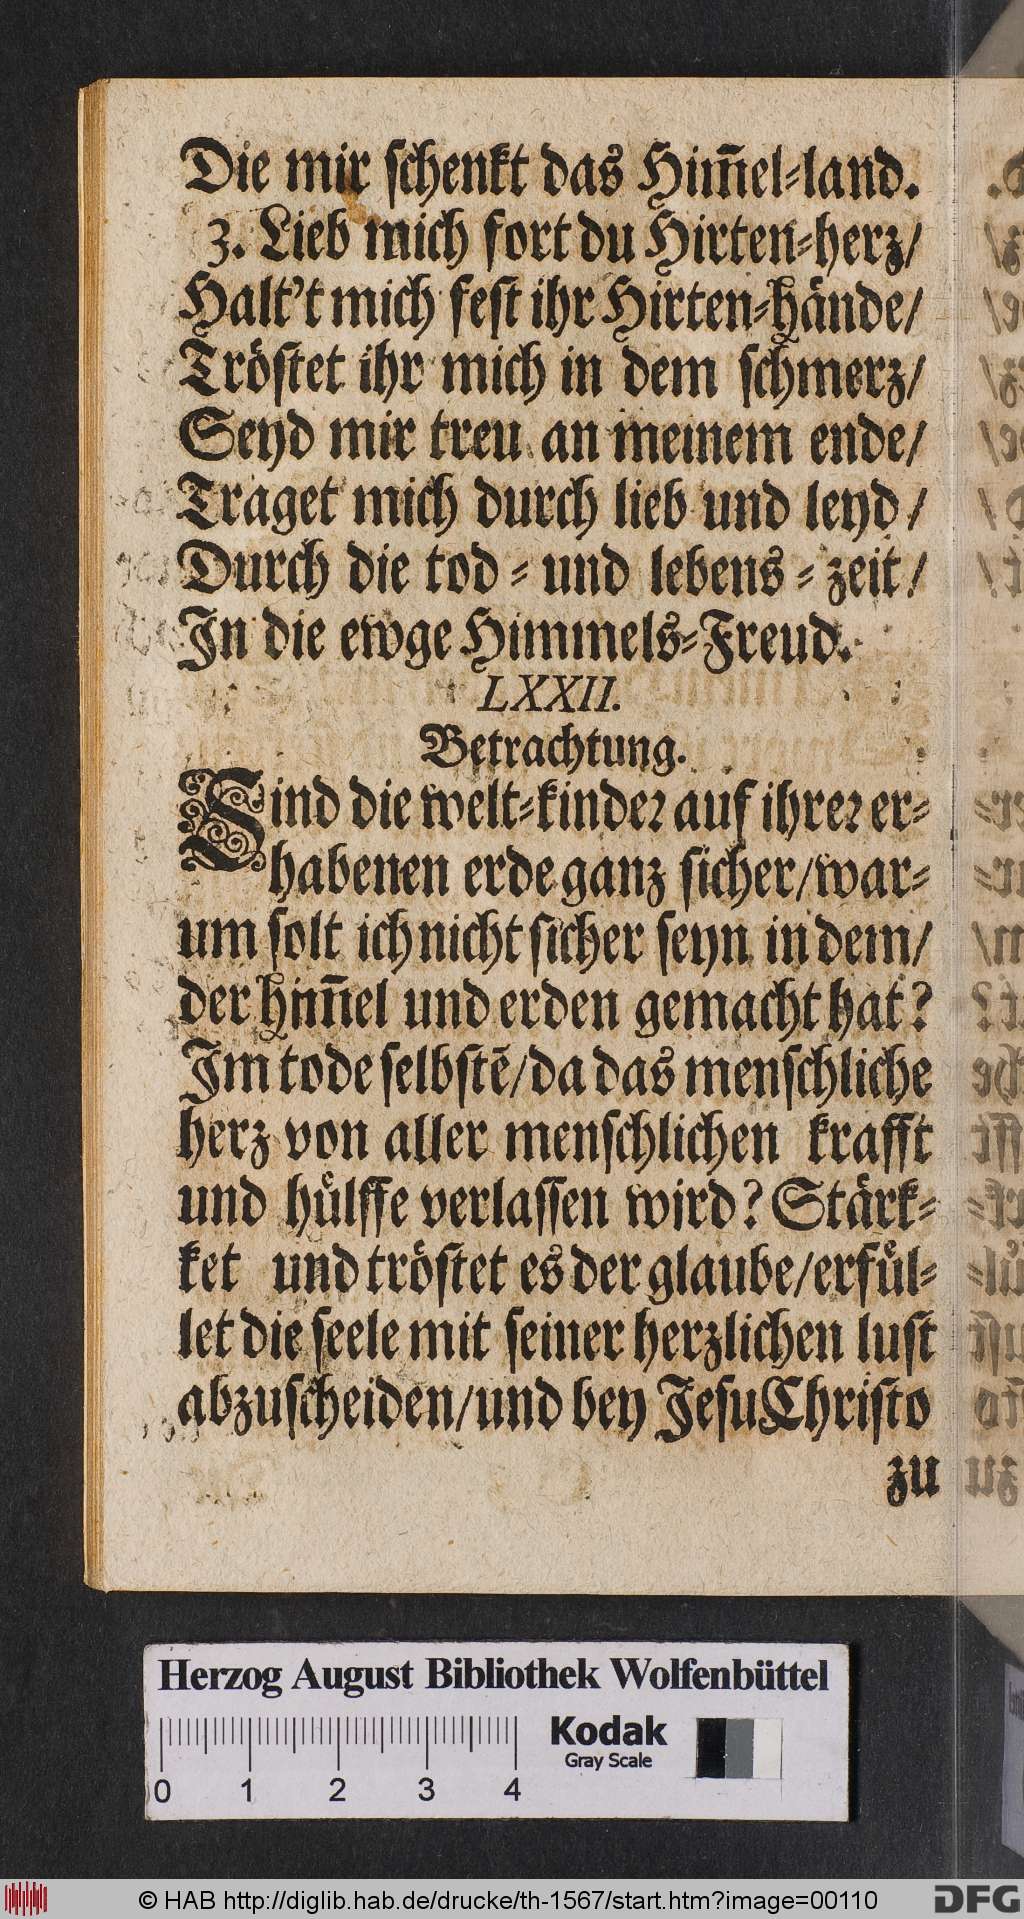 Die mir schenkt das Him̃el-land.
3. Lieb mich fort du Hirten-herz/
Halt't mich fest ihr Hirten-hände/
Tröstet ihr mich in dem schmerz/
Seyd mir treu an meinem ende/
Traget mich durch lieb und leyd/
Durch die tod- und lebens-zeit/
In die ewge Himmels-Freud.
LXXII.
Betrachtung.
Sind die welt-kinder auf ihrer er-
habenen erde ganz sicher/war-
um solt ich nicht sicher seyn in dem/
der him̃el und erden gemacht hat?
Im tode selbstẽ/da das menschliche
herz von aller menschlichen krafft
und hülffe verlassen wird? Stärk-
ket und tröstet es der glaube/erfül-
let die seele mit seiner herzlichen lust
abzuscheiden/und bey Jesu Christo
zu
Herzog August Bibliothek Wolfenbüttel
Kodak
Gray Scale
0 1 2 3 4
© HAB http://diglib.hab.de/drucke/th-1567/start.htm?image=00110
DFG